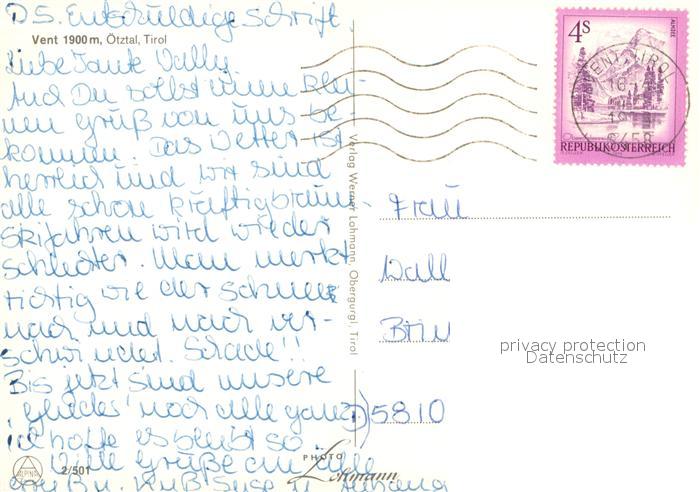 P.S. Entschuldige Schrift.
Vent 1900 m, Ötztal, Tirol
Liebe Tante Vally.
Auch Du sollst einen klei-
nen Gruß von uns be
kommen. Das Wetter ist
herrlich und wir sind
alle schon kräftig braun.
Skifahren wird wieder
schlechter. Man merkt
richtig wie der Schnee
nach und nach ver-
schwindet. Schade!!
Bis jetzt sind unsere
Glieder noch alle ganz.
ich hoffe es bleibt so
Viele Grüße an alle
Gruß u. Kuß Suse u.
ALPINA
2/501
PHOTO
Lohmann
Verlag Werner Lohmann, Obergurgl, Tirol
4S
ALMSEE
REPUBLIK ÖSTERREICH
VENT, TIROL
6458
Frau
Wall
D) 5810
privacy protection
Datenschutz